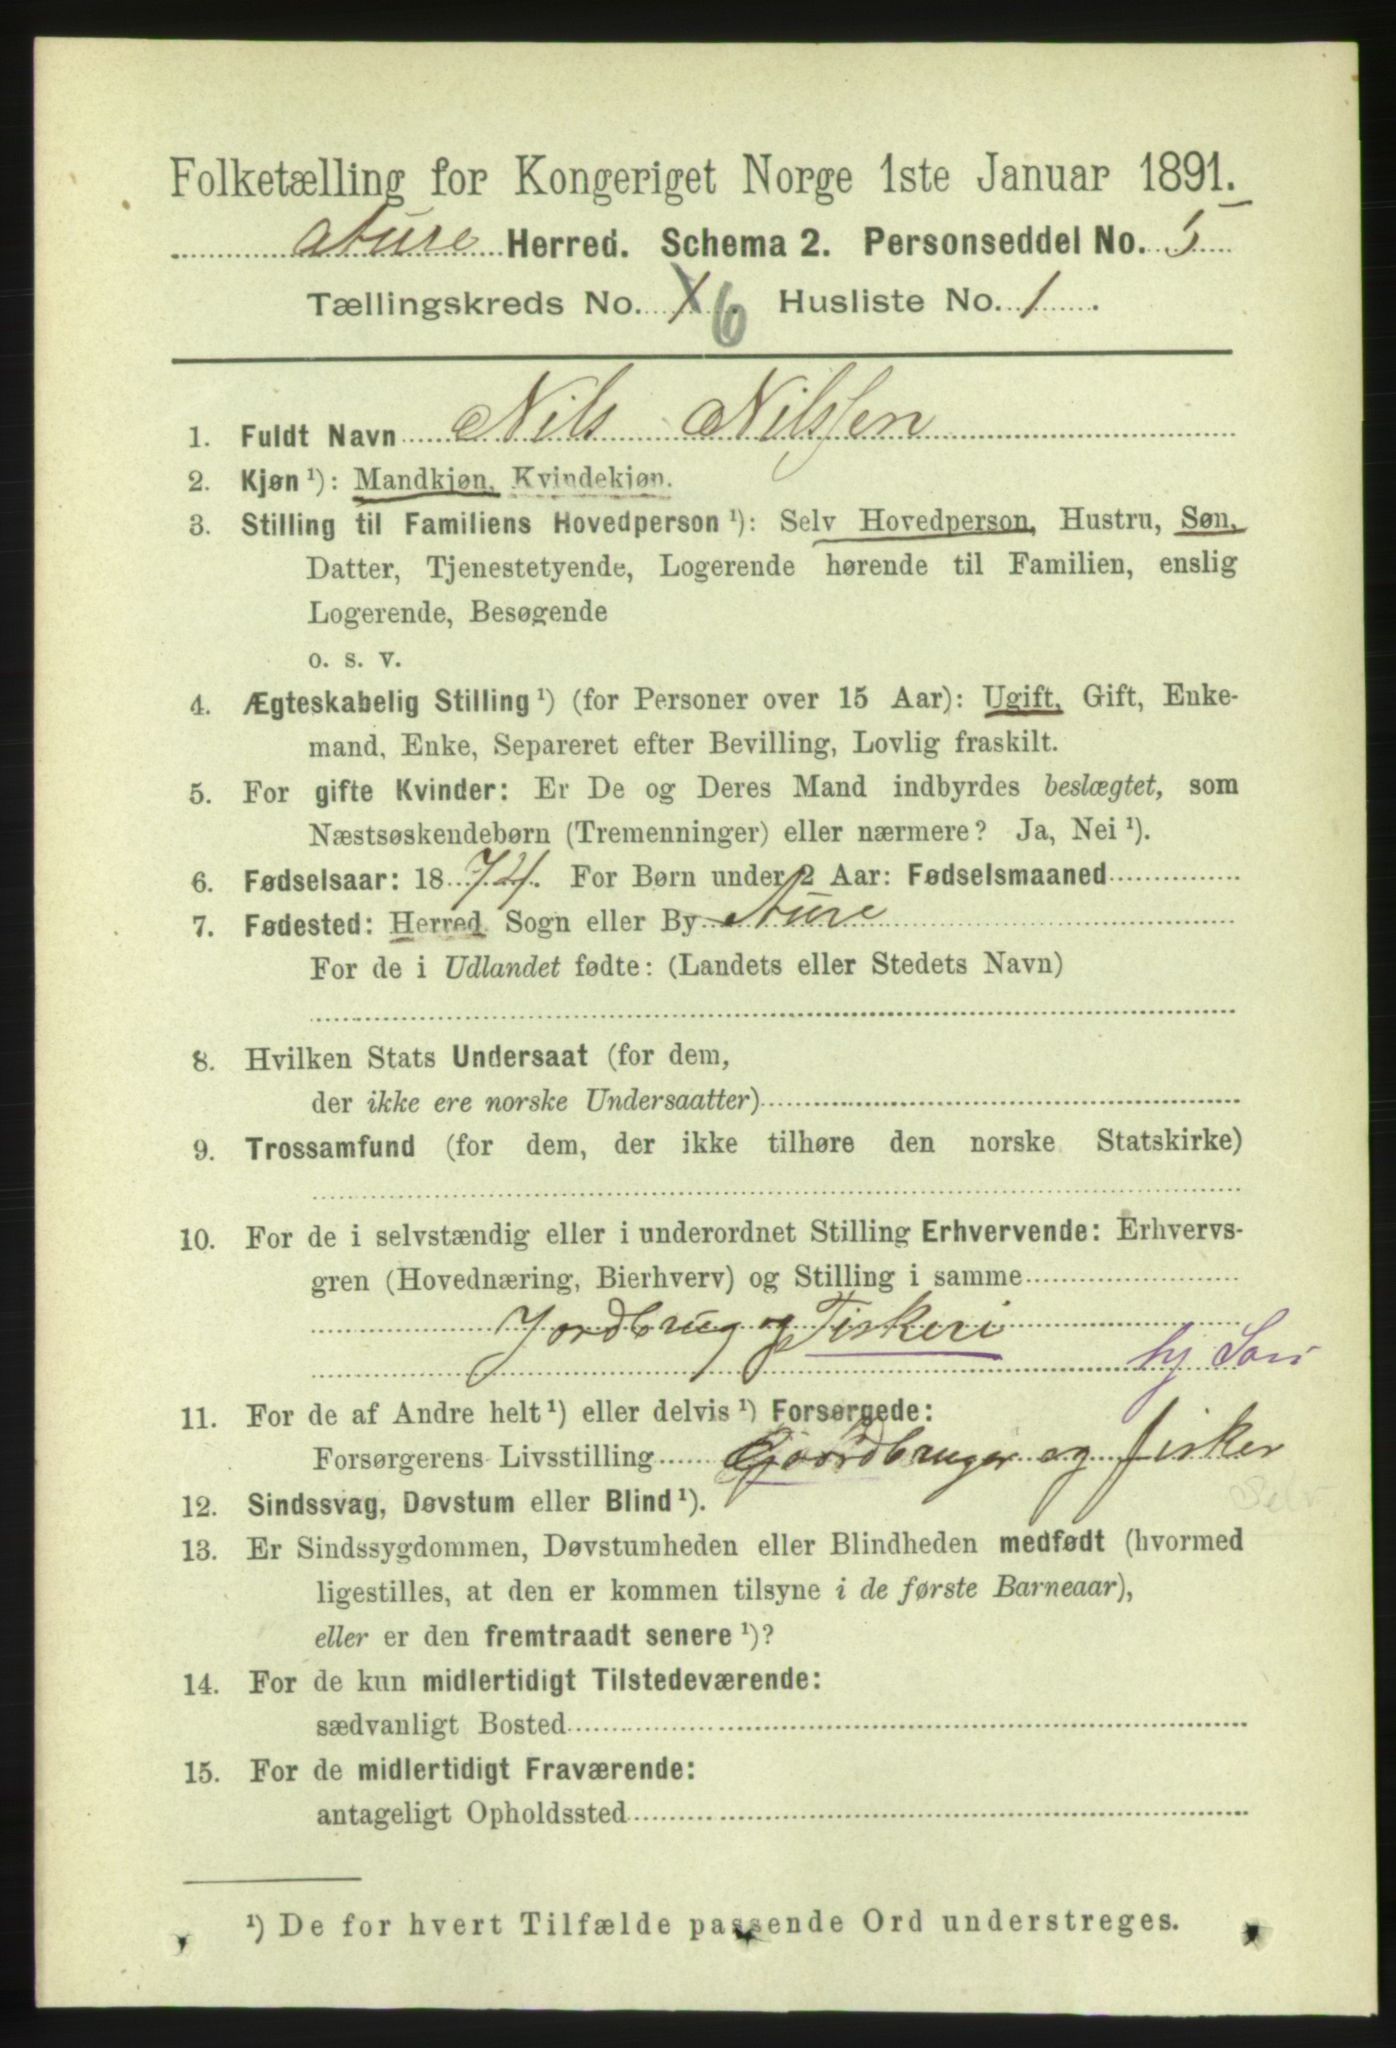 Folketælling for Kongeriget Norge 1ste Januar 1891.
Aure Herred. Schema 2. Personseddel No. 5
Tællingskreds No. 1 6 Husliste No. 1.
1. Fuldt Navn Nils Nilssen
2. Kjøn ¹): Mandkjøn, Kvindekjøn.
3. Stilling til Familiens Hovedperson ¹): Selv Hovedperson, Hustru, Søn,
Datter, Tjenestetyende, Logerende hørende til Familien, enslig
Logerende, Besøgende
o. s. v.
4. Ægteskabelig Stilling ¹) (for Personer over 15 Aar): Ugift, Gift, Enke-
mand, Enke, Separeret efter Bevilling, Lovlig fraskilt.
5. For gifte Kvinder: Er De og Deres Mand indbyrdes beslægtet, som
Næstsøskendebørn (Tremenninger) eller nærmere? Ja, Nei ¹).
6. Fødselsaar: 1874. For Børn under 2 Aar: Fødselsmaaned
7. Fødested: Herred, Sogn eller By Aure
For de i Udlandet fødte: (Landets eller Stedets Navn)
8. Hvilken Stats Undersaat (for dem,
der ikke ere norske Undersaatter)
9. Trossamfund (for dem, der ikke tilhøre den norske Statskirke)
10. For de i selvstændig eller i underordnet Stilling Erhvervende: Erhvervs-
gren (Hovednæring, Bierhverv) og Stilling i samme
Jordbrug og Fiskeri
hj Søn
11. For de af Andre helt ¹) eller delvis ¹) Forsørgede:
Forsørgerens Livsstilling Gaardbruger og fisker
Selv
12. Sindssvag, Døvstum eller Blind ¹).
13. Er Sindssygdommen, Døvstumheden eller Blindheden medfødt (hvormed
ligestilles, at den er kommen tilsyne i de første Barneaar),
eller er den fremtraadt senere ¹)?
14. For de kun midlertidigt Tilstedeværende:
sædvanligt Bosted
15. For de midlertidigt Fraværende:
antageligt Opholdssted
¹) De for hvert Tilfælde passende Ord understreges.